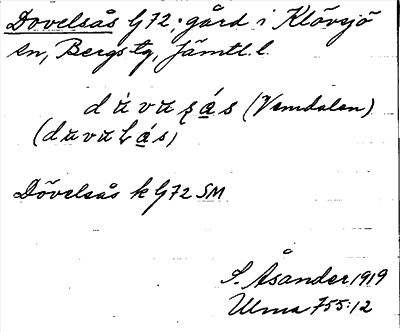 Dovelsås G72; gård i Klövsjö
sn, Bergs tg, Jämtl. l.
(Vemdalen)
Dövelsås k G72 SM
S. Åsander 1919
Ulma 755:12